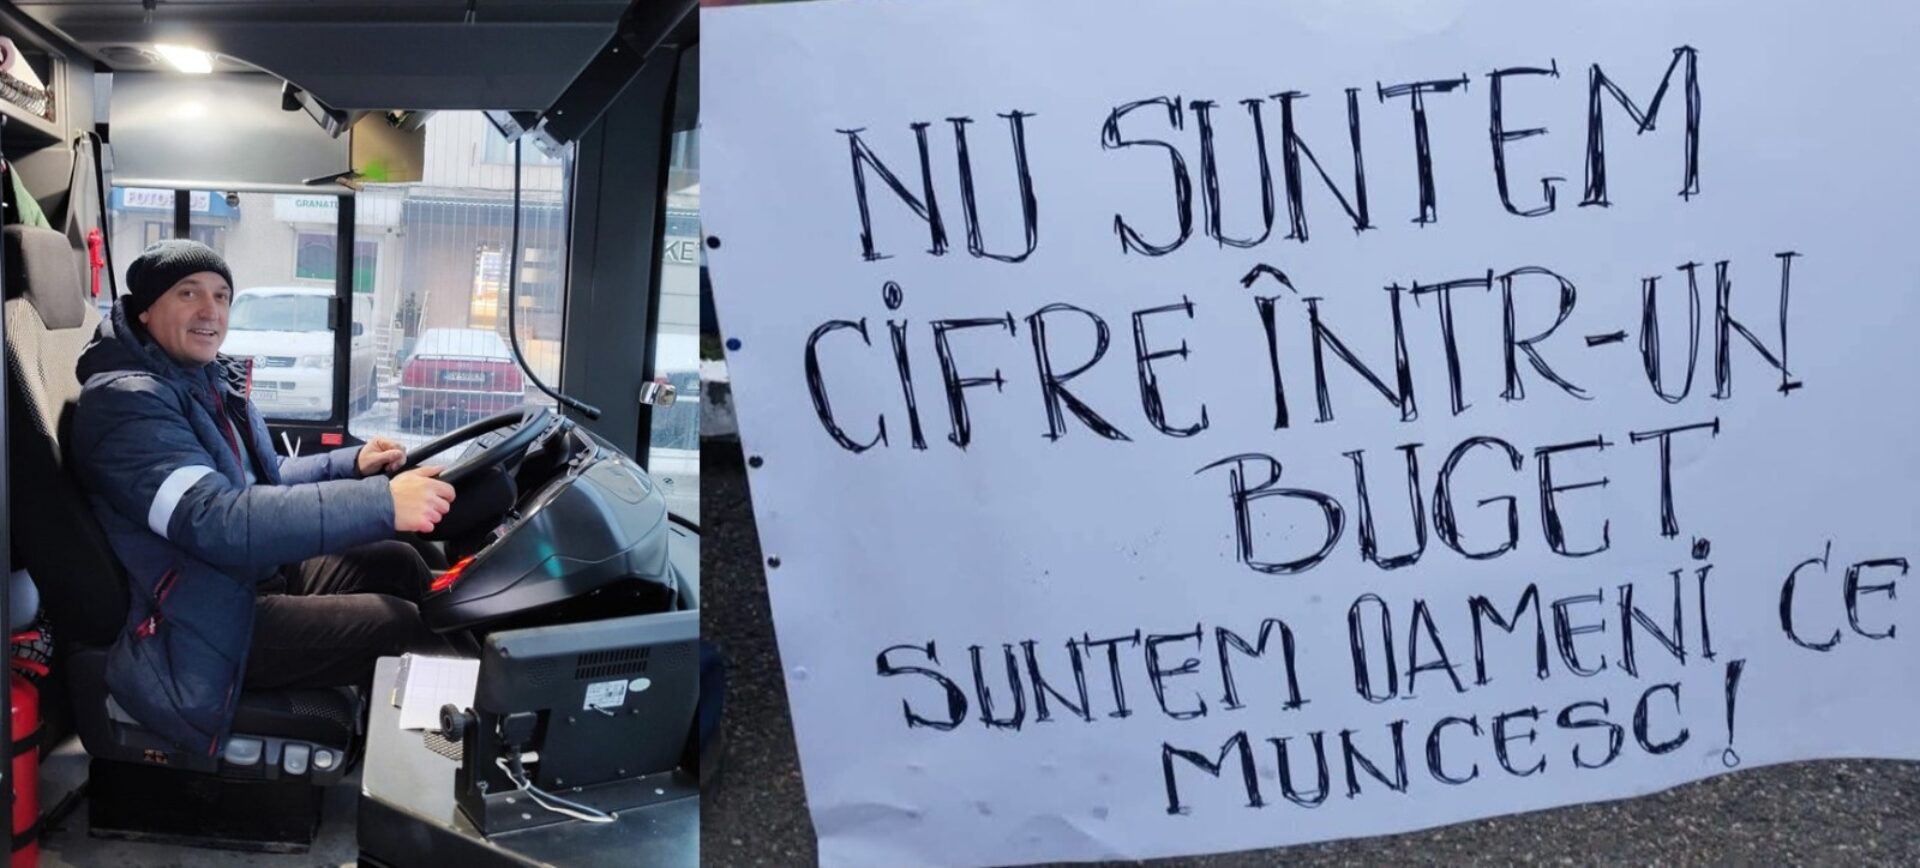 GRANAT
KE
NU SUNTEM
CIFRE ÎNTR-UN
BUGET
SUNTEM OAMENI CE
MUNCESC!